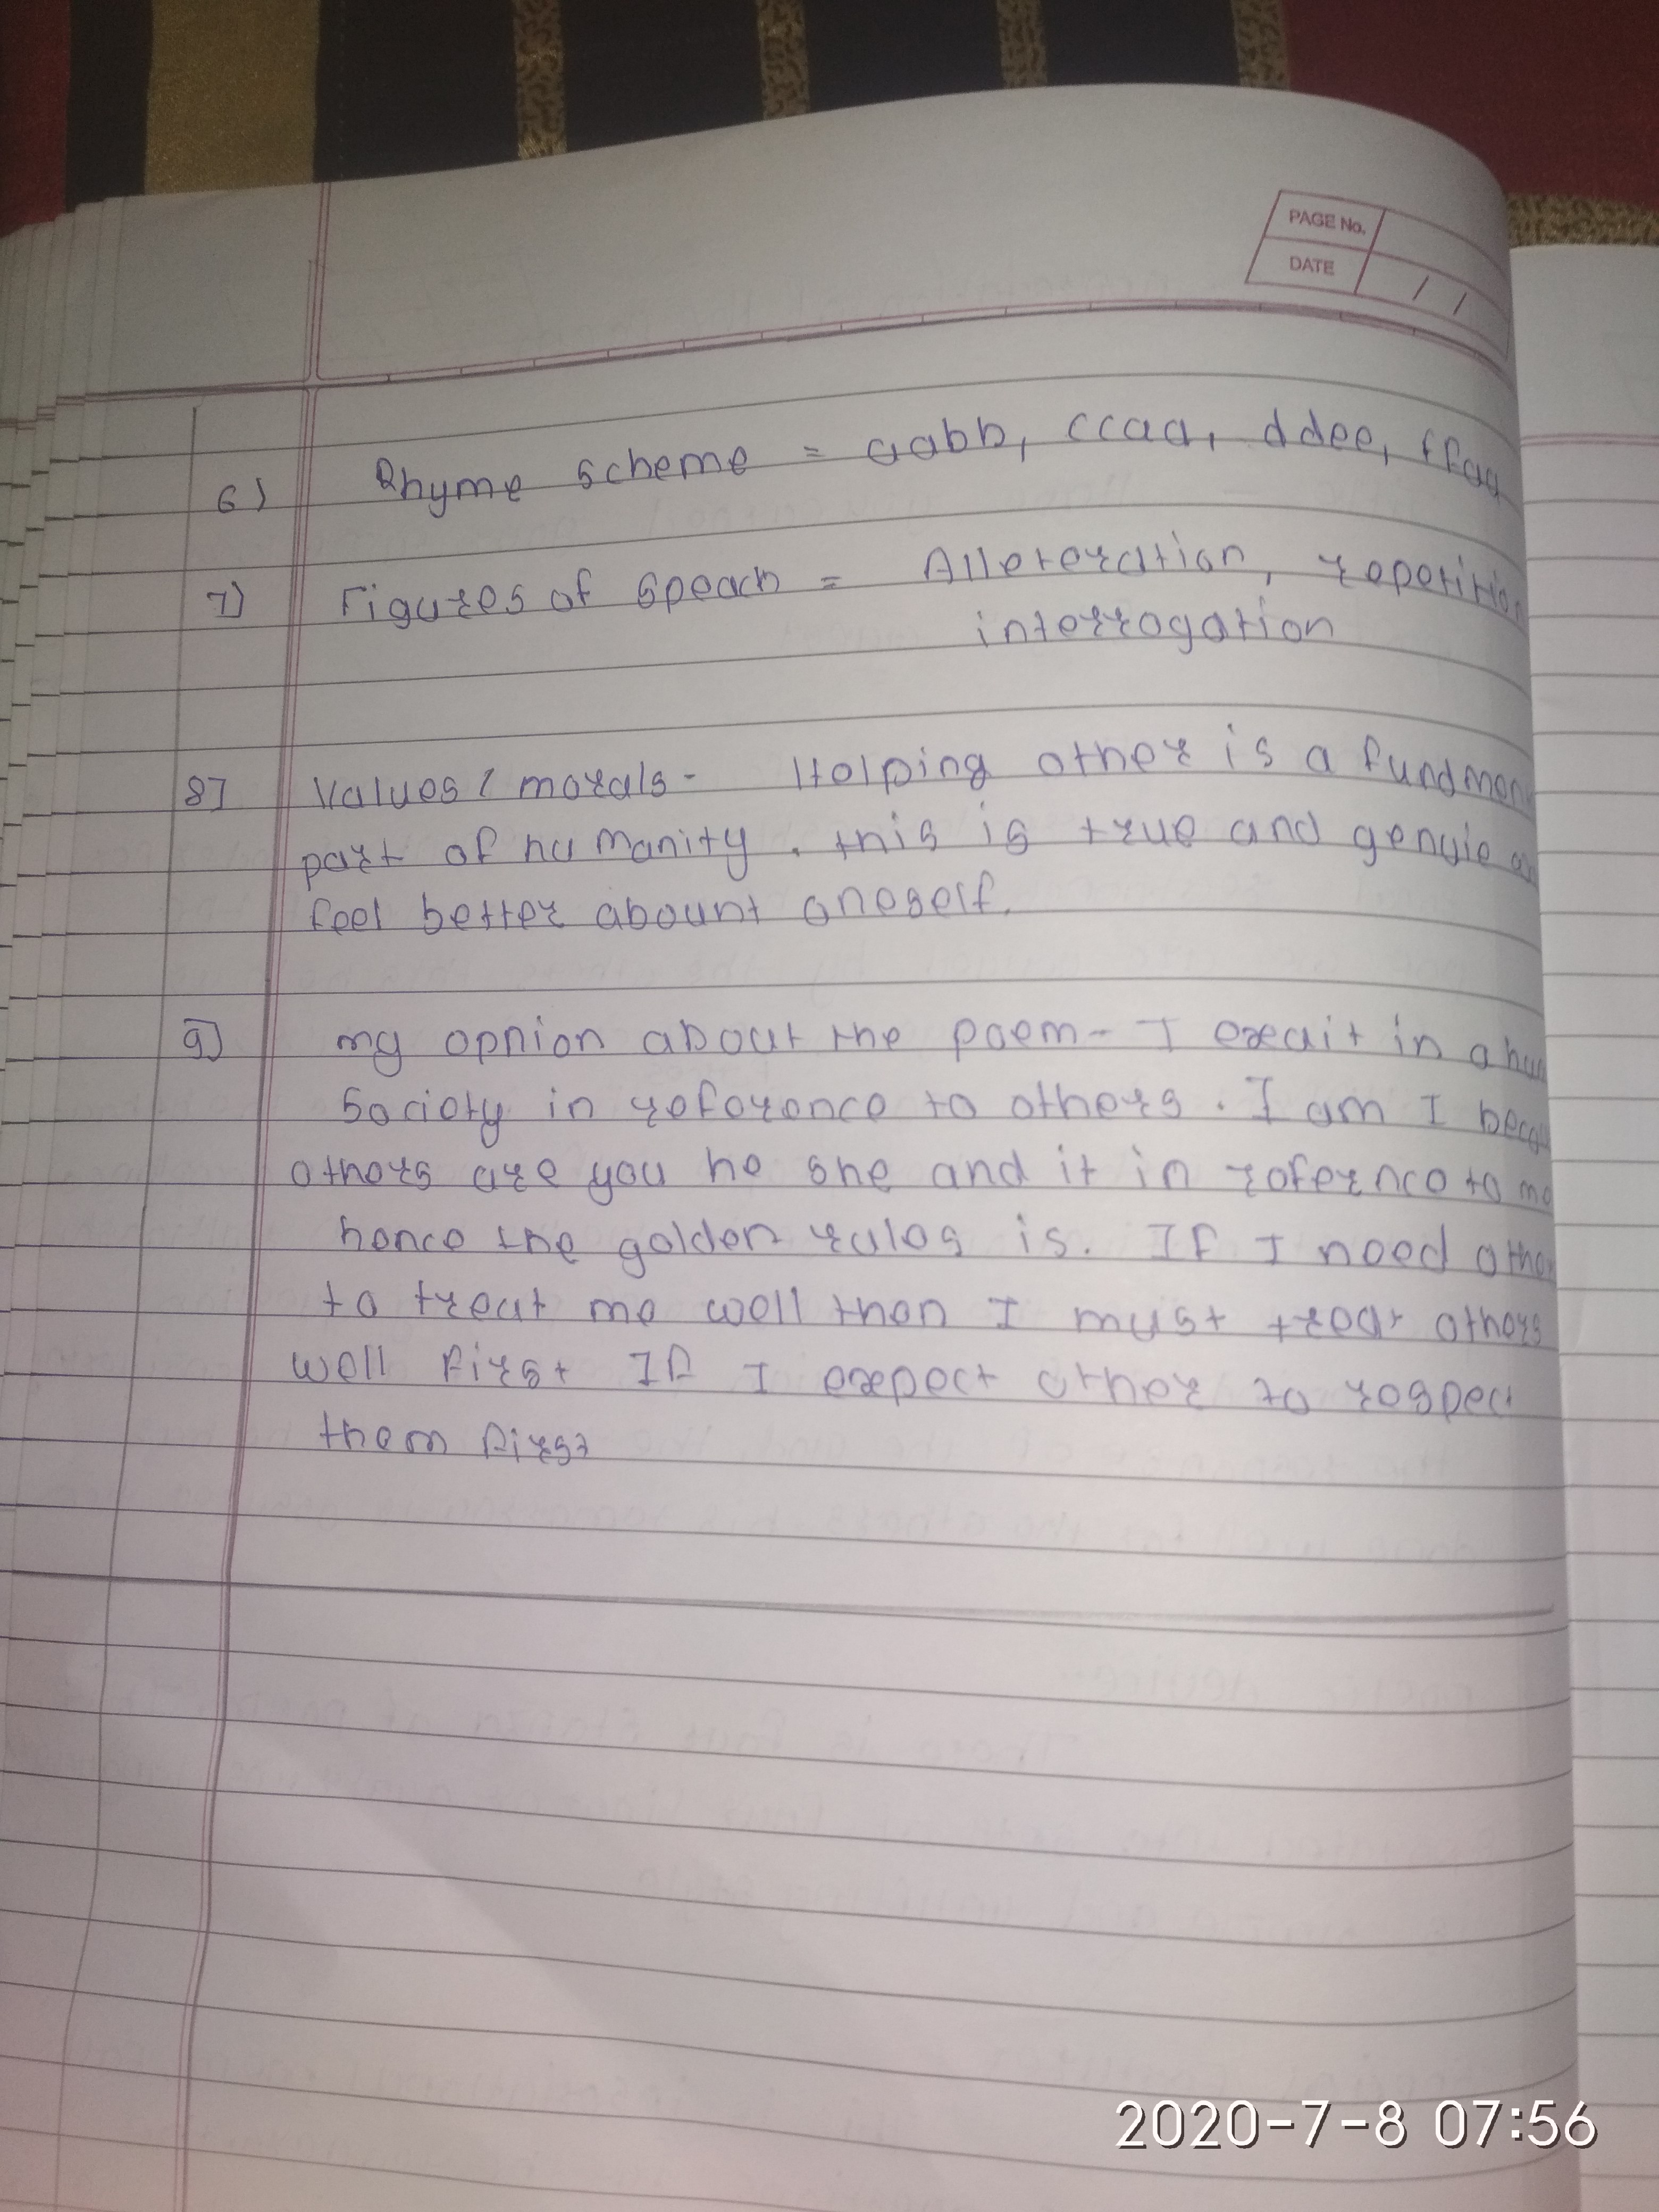 PAGE No.
DATE / /
6) Rhyme scheme = aabb, ccaa, ddee, ffaa
7) Figures of speach = Alleteration, repetition
interrogation
8] Values / morals - Helping other is a fundmen
part of humanity. this is true and genuie
feel better abount oneself.
9] my opnion about the poem - I exeit in a hu
Society in reference to others. I am I becau
others are you he she and it in refernce to me
hence the golden rules is. If I need other
to treat me well then I must treat others
well first If I expect other to respect
them first
2020-7-8 07:56